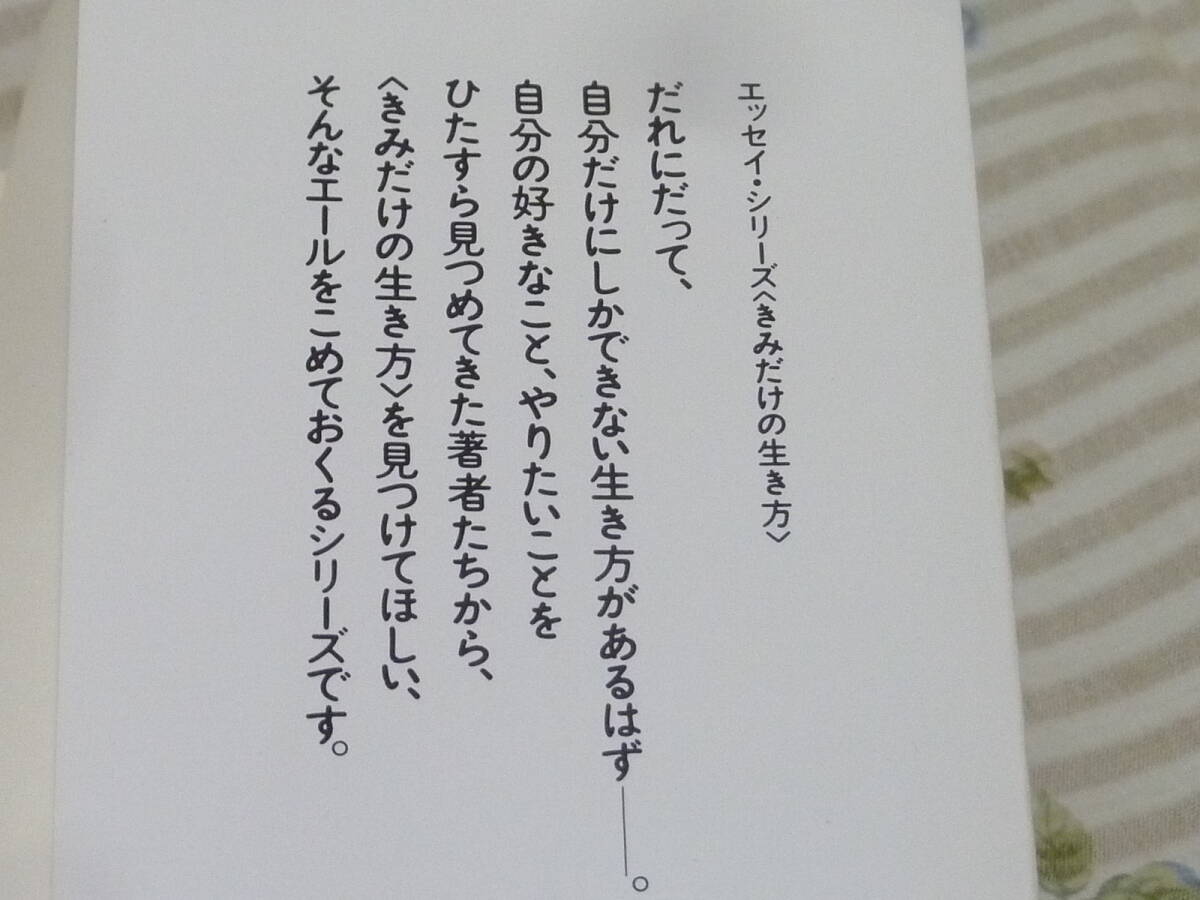 エッセイ・シリーズ〈きみだけの生き方〉
だれにだって、
自分だけにしかできない生き方があるはず――。
自分の好きなこと、やりたいことを
ひたすら見つめてきた著者たちから、
〈きみだけの生き方〉を見つけてほしい、
そんなエールをこめておくるシリーズです。